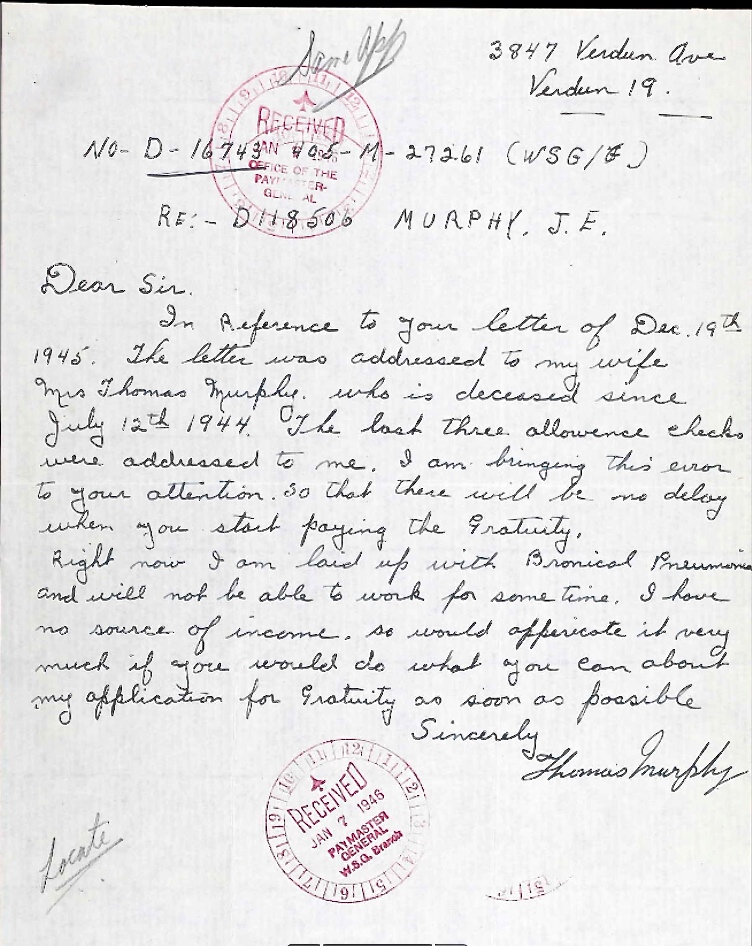 Same App
3847 Verdun Ave
Verdun 19.
RECEIVED
JAN
OFFICE OF THE
PAYMASTER-
GENERAL
NO- D-16743 405-M-27261 (WSG/F)
RE:- D118506 MURPHY, J.E.
Dear Sir.
In Reference to your letter of Dec. 19th
1945. The letter was addressed to my wife
Mrs Thomas Murphy. who is deceased since
July 12th 1944. The last three allowence checks
were addressed to me. I am bringing this error
to your attention. so that there will be no delay
when you start paying the Gratuity.
Right now I am laid up with Bronical Pneumonia
and will not be able to work for some time. I have
no source of income. so would appericate it very
much if you would do what you can about
my application for Gratuity as soon as possible
Sincerely
Thomas Murphy
RECEIVED
JAN 7 1946
PAYMASTER
GENERAL
W.S.G. Branch
Locate